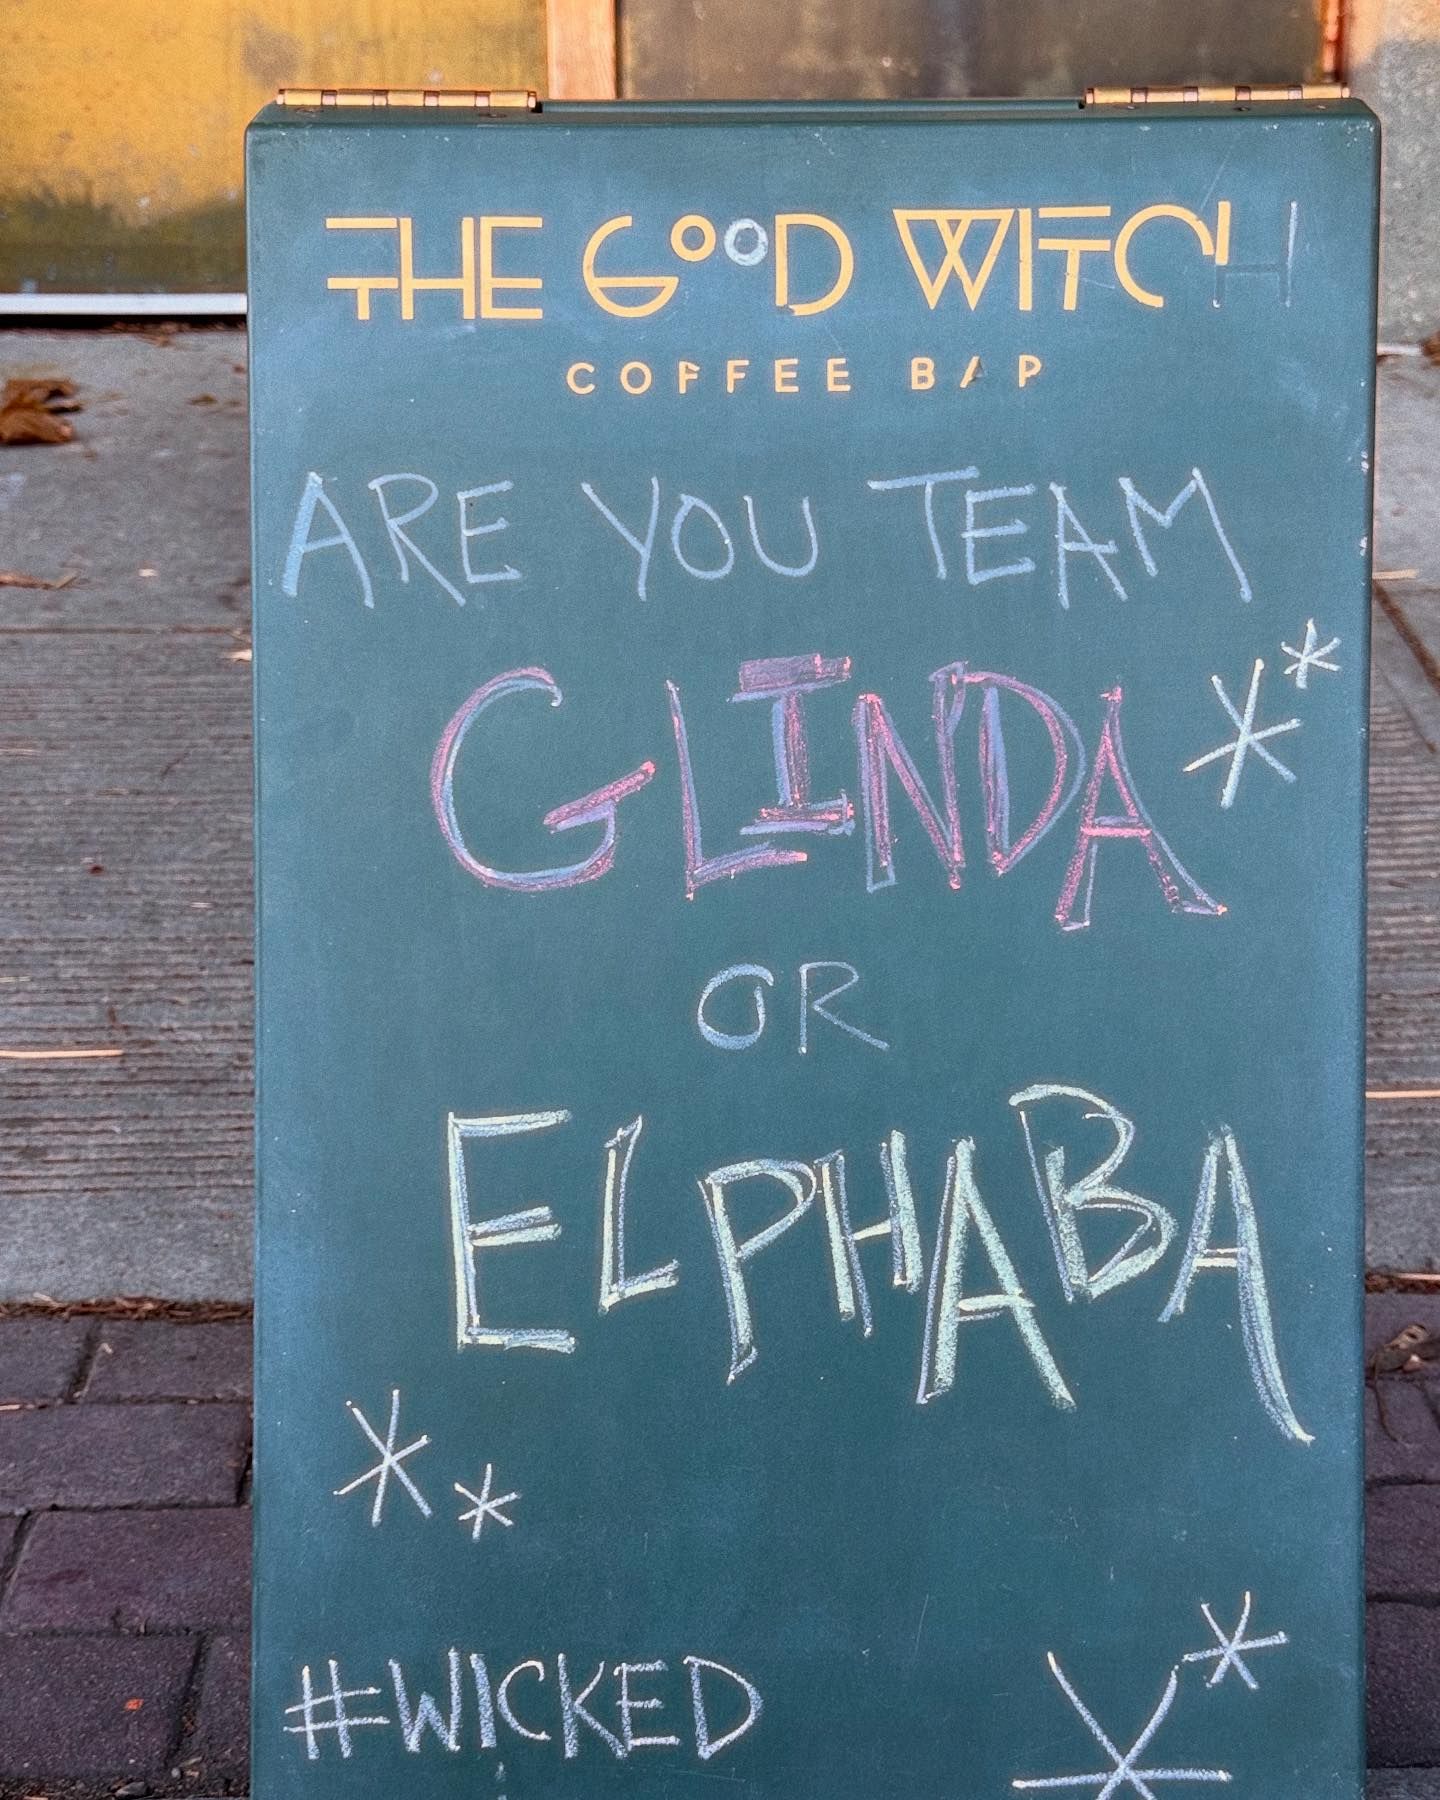 THE GOOD WITCH
COFFEE BAR
ARE YOU TEAM
GLINDA
OR
ELPHABA
#WICKED